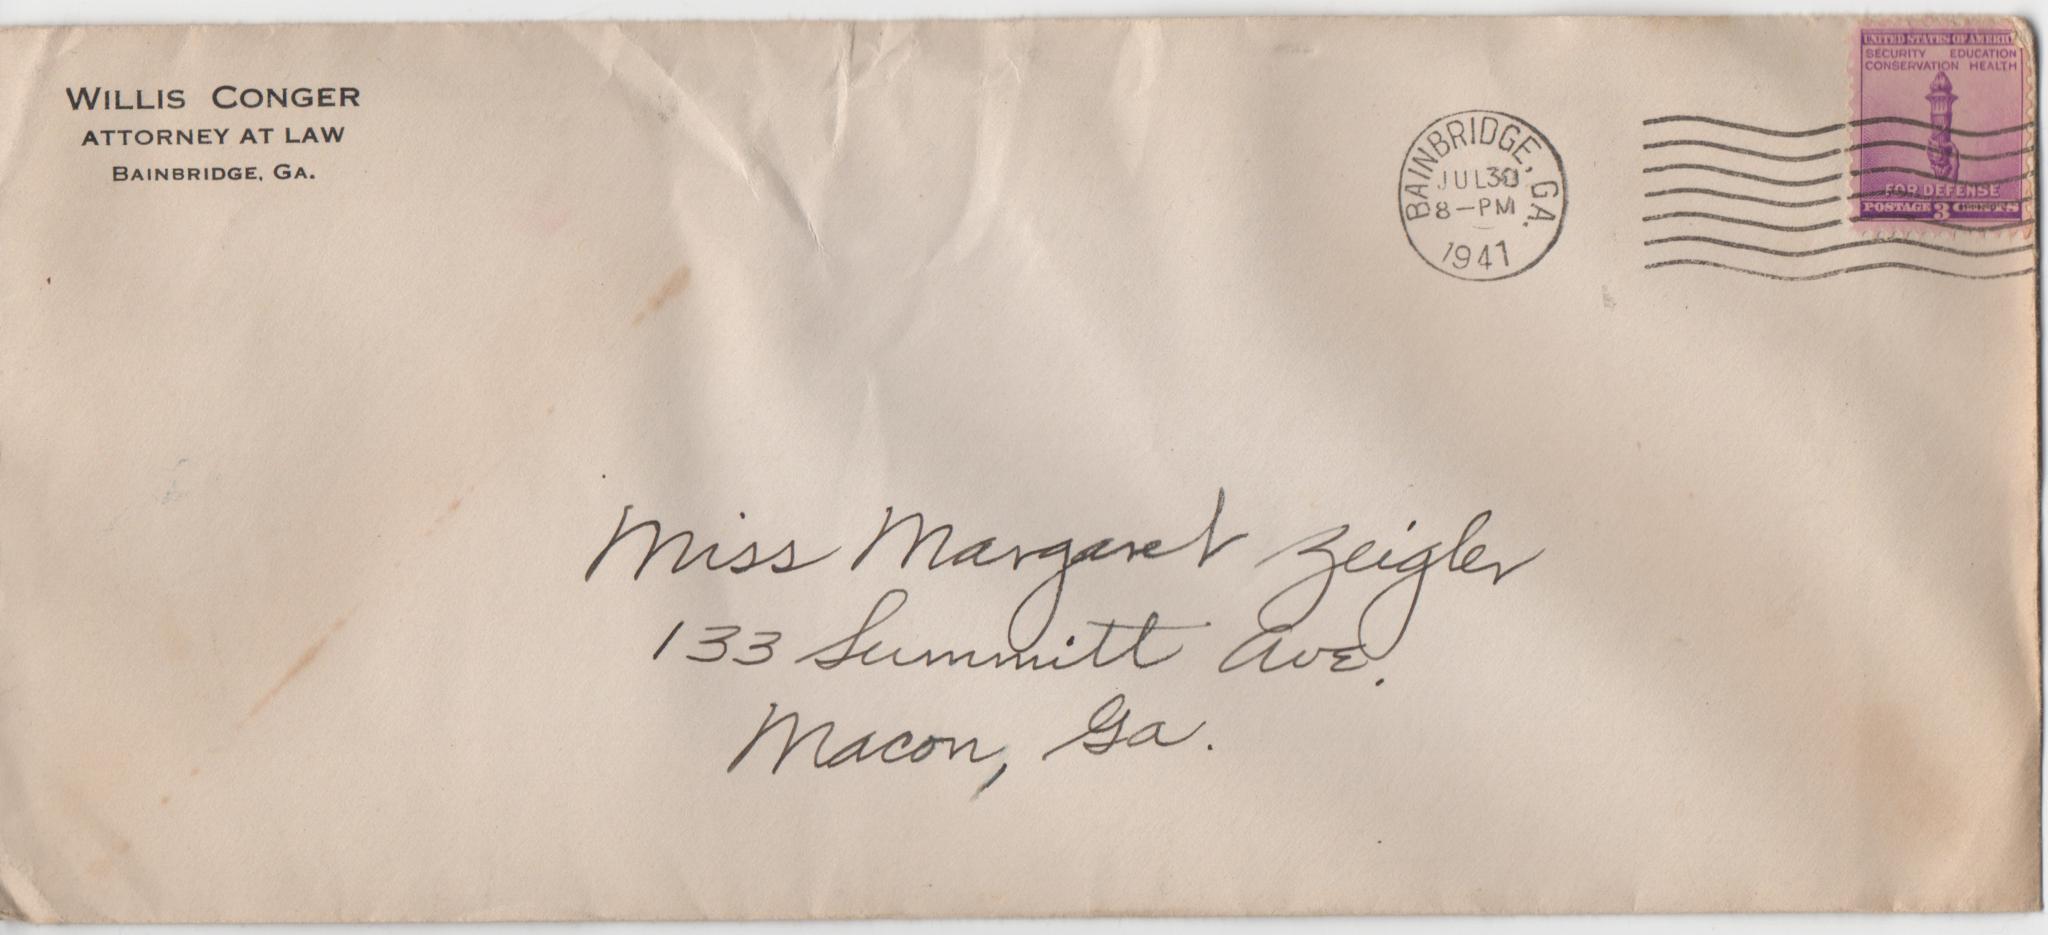 WILLIS CONGER
ATTORNEY AT LAW
BAINBRIDGE, GA.
BAINBRIDGE, GA.
JUL 30
8-PM
1941
UNITED STATES OF AMERICA
SECURITY EDUCATION
CONSERVATION HEALTH
FOR DEFENSE
POSTAGE 3 CENTS
Miss Margaret Zeigler
133 Summitt Ave.
Macon, Ga.